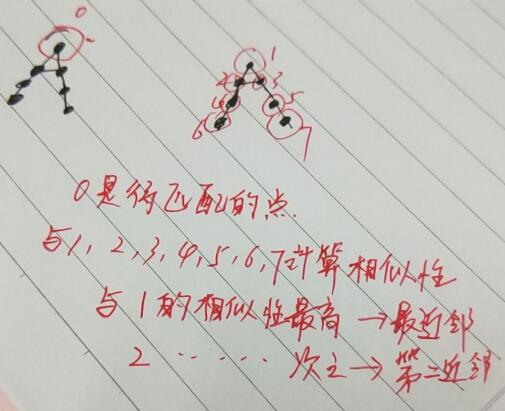 0
1
2 3
4 5
6 7
0是待匹配的点.
与1,2,3,4,5,6,7计算相似性
与1的相似性最高→最近邻
2 ····· 次之→第二近邻